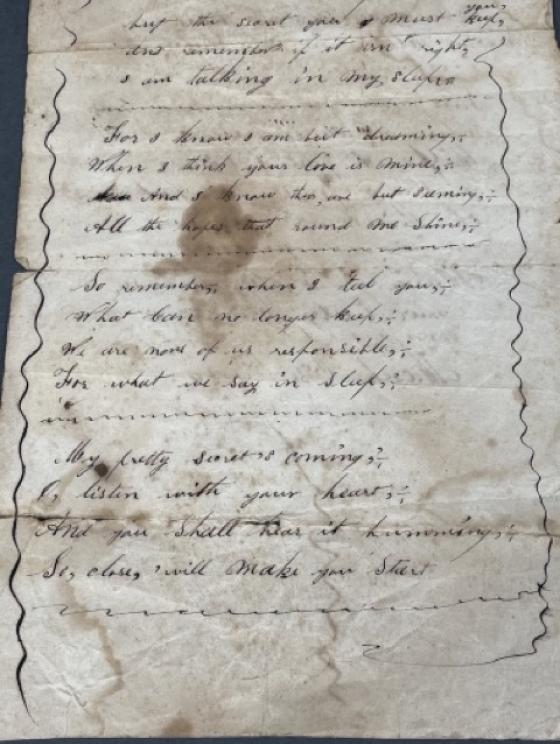 but the secret you must you keep,
and remember if it isn't right,
I am talking in my sleep
For I know I am but dreaming,
When I think your love is mine,
And I know they are but seeming,
All the hopes that round me shine,
So remember, when I tell you,
What can no longer keep,
We are none of us responsible,
For what we say in sleep,
My pretty secret's coming,
O, listen with your heart,
And you shall hear it humming,
So, close, 'twill make you start